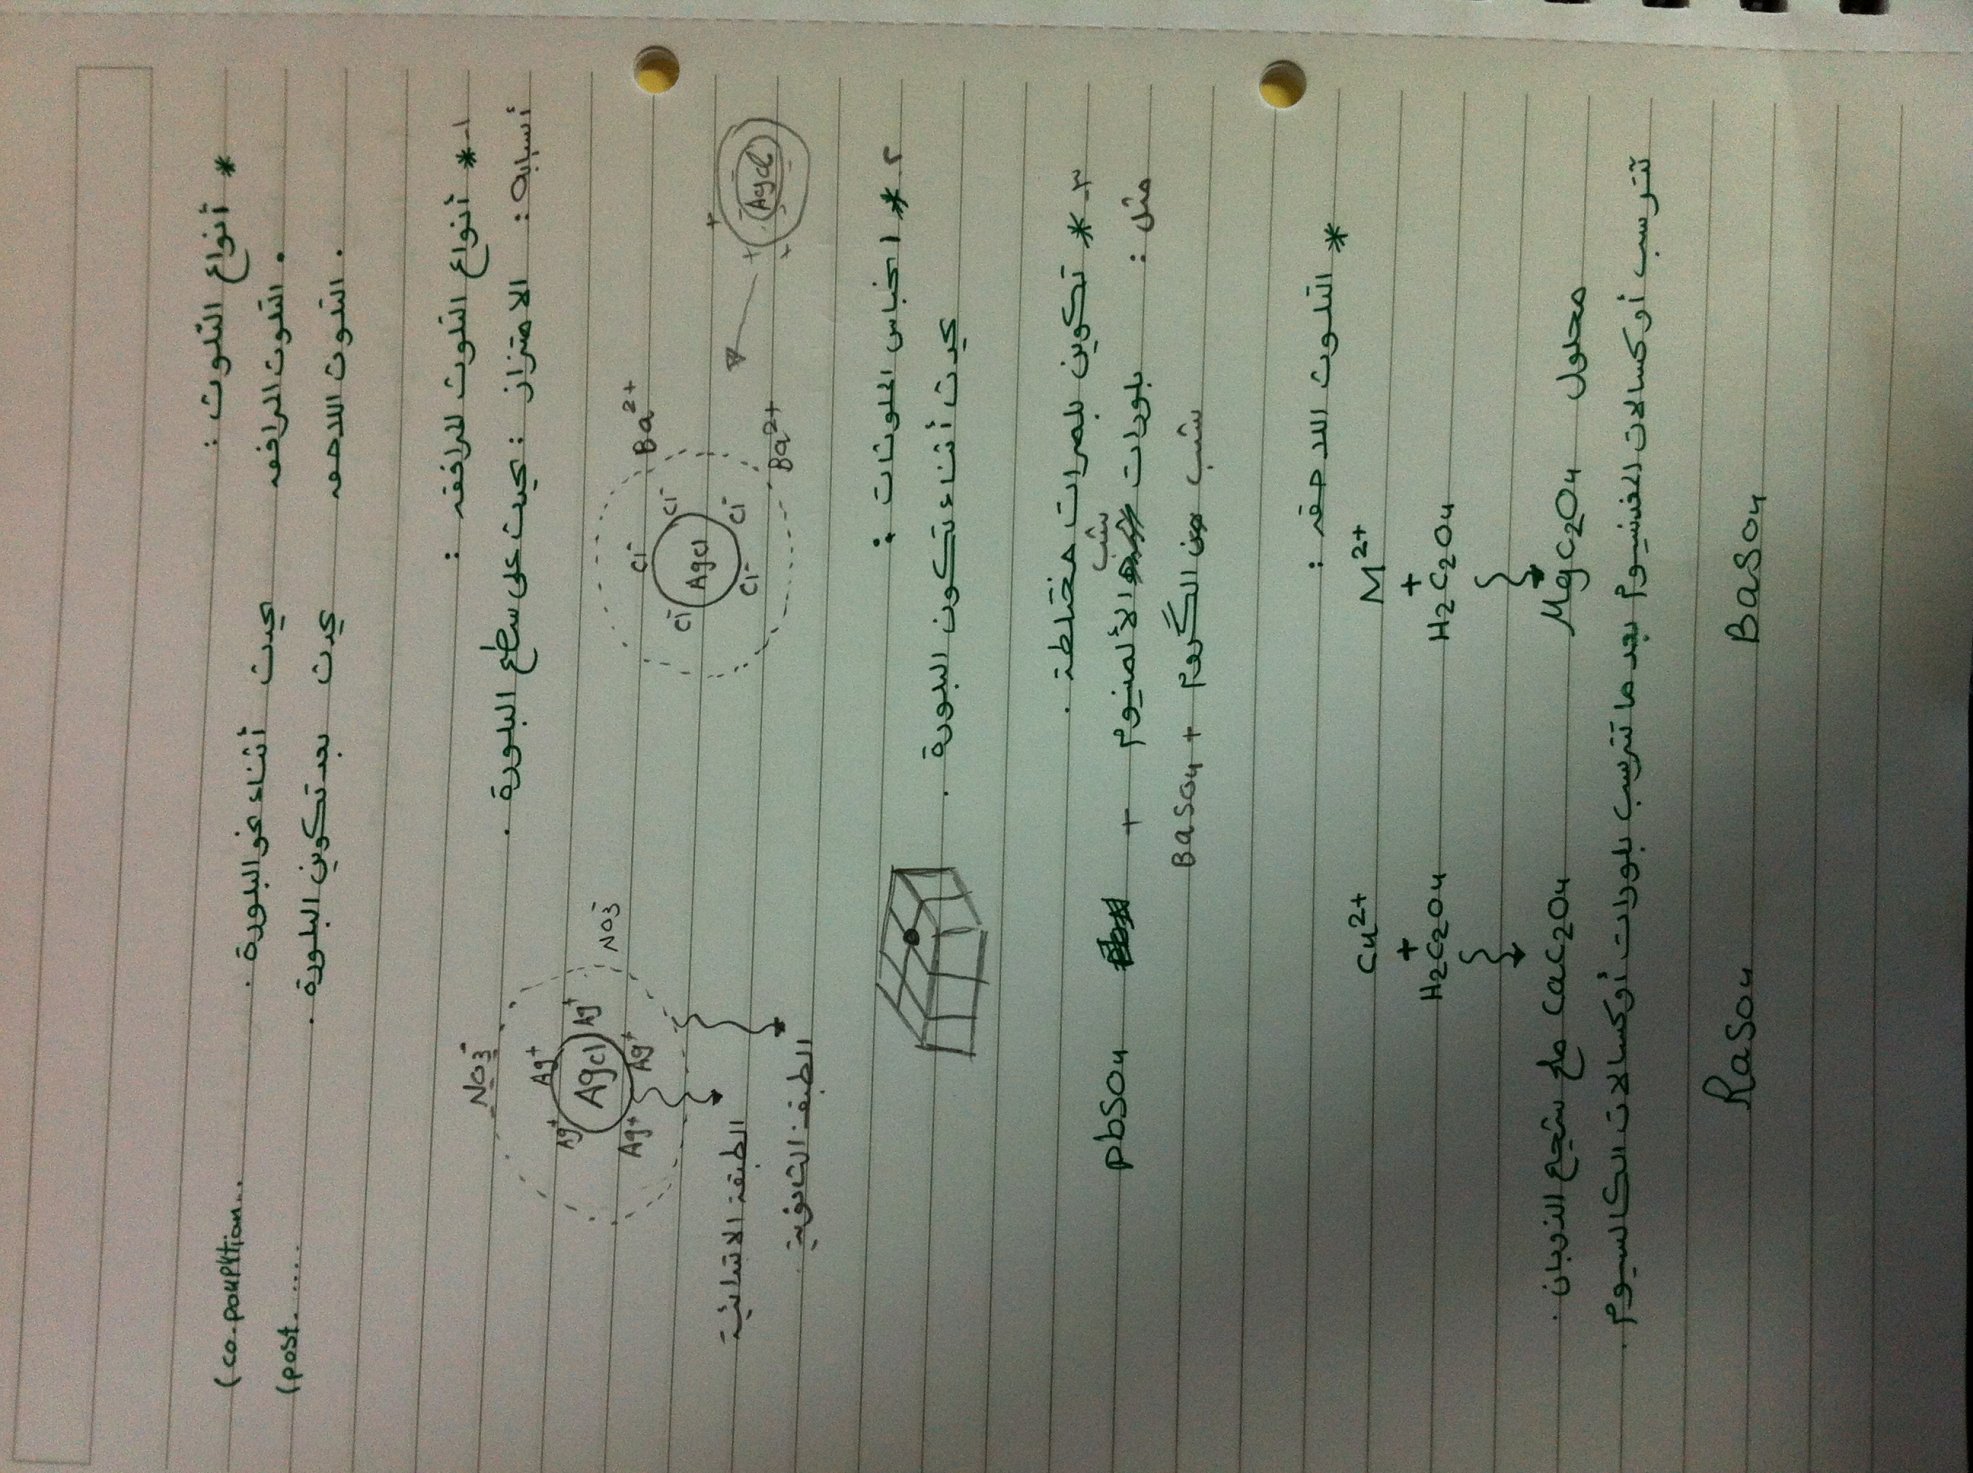 * أنواع التلوث :
• التلوث المرافقه يحدث أثناء نمو البلورة . (co-pouption...
• التلوث اللاحقه يحدث بعد تكوين البلورة . (post......
١- * أنواع التلوث المرافقه :
أسبابه : الامتزاز : يحدث على سطح البلورة .
NO3-
NO3-
Ag+ Ag+ Ag+ Ag+ Ag+
AgCl
الطبقة الابتدائية
الطبقة الثانوية
Ba2+
Ba2+
Cl- Cl- Cl- Cl- Cl-
AgCl
AgCl
٢- * احتباس الملوثات :
يحدث أثناء تكون البلورة .
٣- * تكوين بلورات مختلطة .
مثل : بلورات شب الألمنيوم + pbSO4
شب الكروم + BaSO4
* التلوث اللاحقه :
M2+ Cu2+
+ +
H2C2O4 H2C2O4
محلول MgC2O4 CaC2O4 ملح شحيح الذوبان .
تترسب أوكسالات المغنسيوم بعد ما تترسب بلورات أوكسالات الكالسيوم .
BaSO4 RaSO4